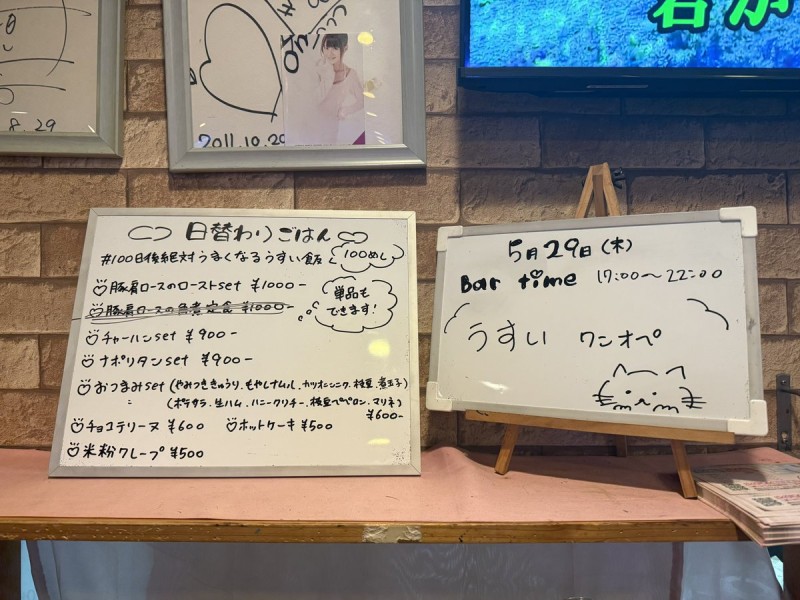 8.29
2011.10.29
日替わりごはん
#100日後絶対うまくなるうすい飯
100めし
豚肩ロースのローストset ¥1000-
豚肩ロースの生姜定食 ¥1000-
単品も
できます!
チャーハンset ¥900-
ナポリタンset ¥900-
おつまみset (やみつききゅうり、もやしナムル、カツオニンニク、枝豆、煮玉子)
(ポテサラ、生ハム、ハニークリチー、枝豆ペペロン、マリネ)
¥600-
チョコテリーヌ ¥600
ホットケーキ ¥500
米粉クレープ ¥500
5月29日(木)
Bar time 17:00〜22:00
うすい ワンオペ